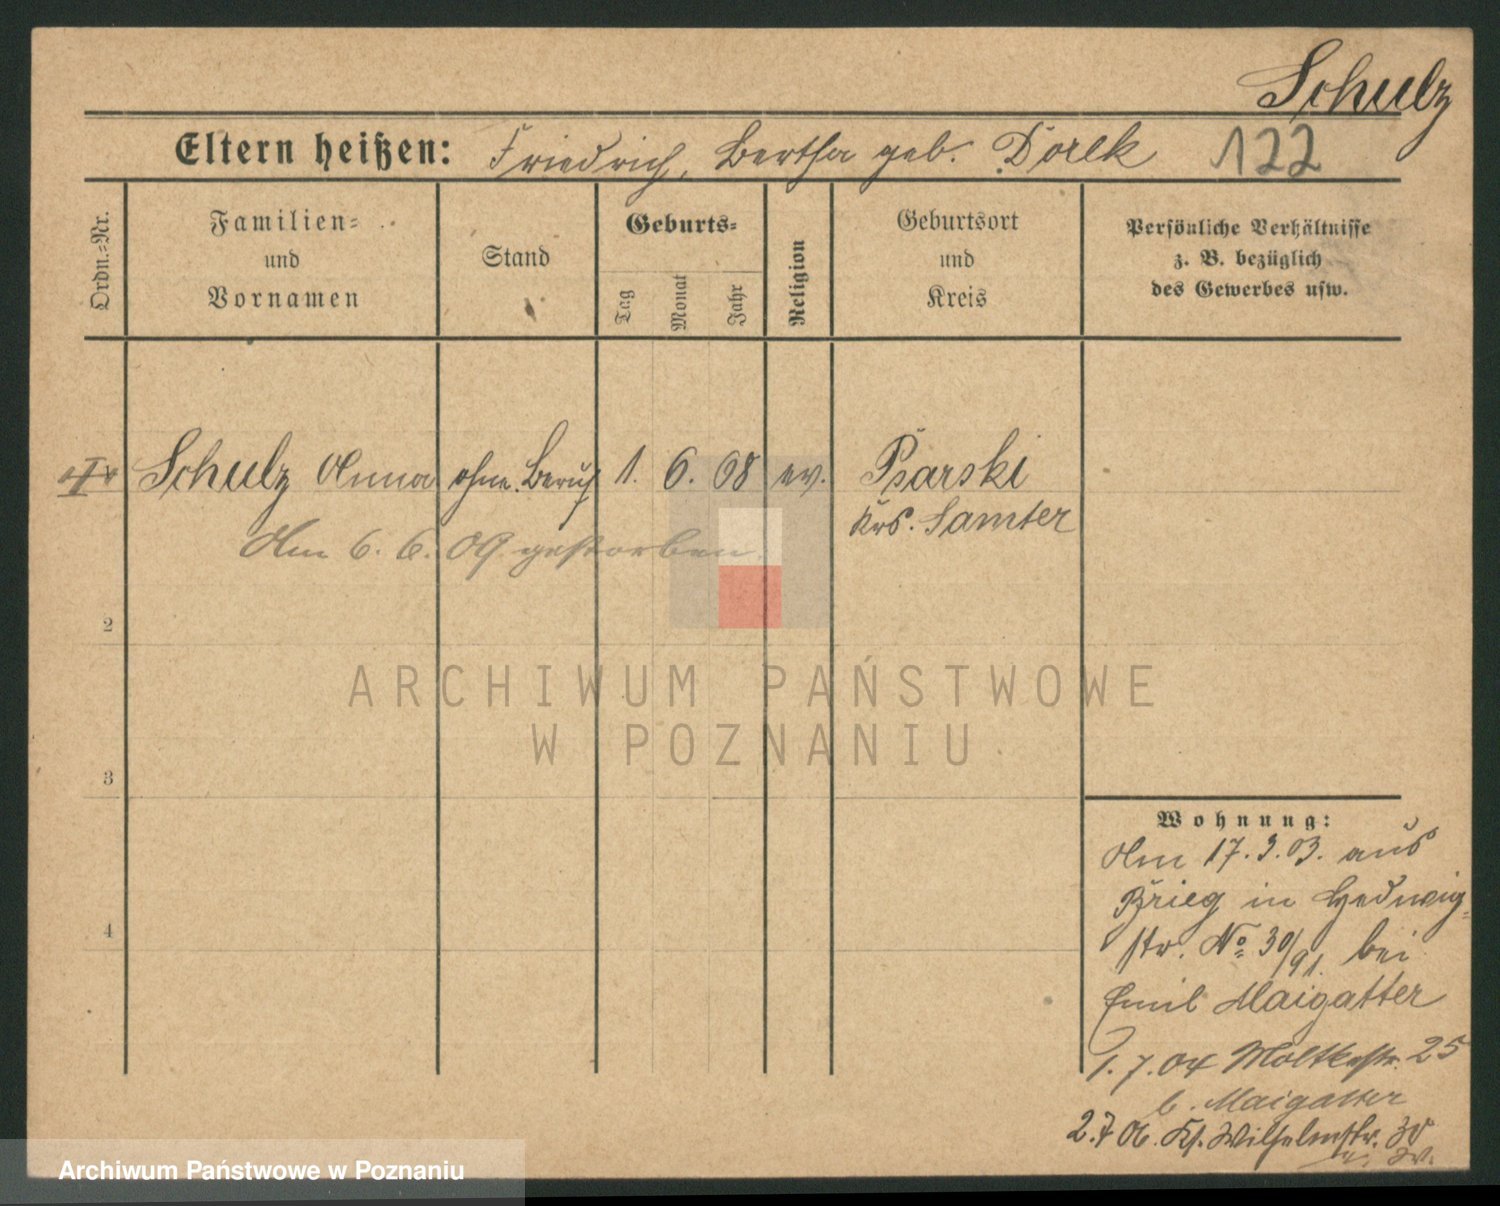 Schulz
Eltern heißen: Friedrich, Bertha geb. Dorek 122
Ordn.-Nr.
Familien-
und
Vornamen
Stand
Geburts-
Tag
Monat
Jahr
Religion
Geburtsort
und
Kreis
Persönliche Verhältnisse
z. B. bezüglich
des Gewerbes usw.
Schulz Anna ohne Beruf 1. 6. 08 ev. Psarski
Krs. Samter
Am 6. 6. 09 gestorben.
2
3
4
Wohnung:
Am 17. 3. 03. aus
Brieg in Hedwig-
str. No 30/91. bei
Emil Maigatter
1. 7. 04 Moltkestr. 25
b. Maigatter
2.7 06. Ks. Wilhelmstr. 30
ARCHIWUM PAŃSTWOWE
W POZNANIU
Archiwum Państwowe w Poznaniu